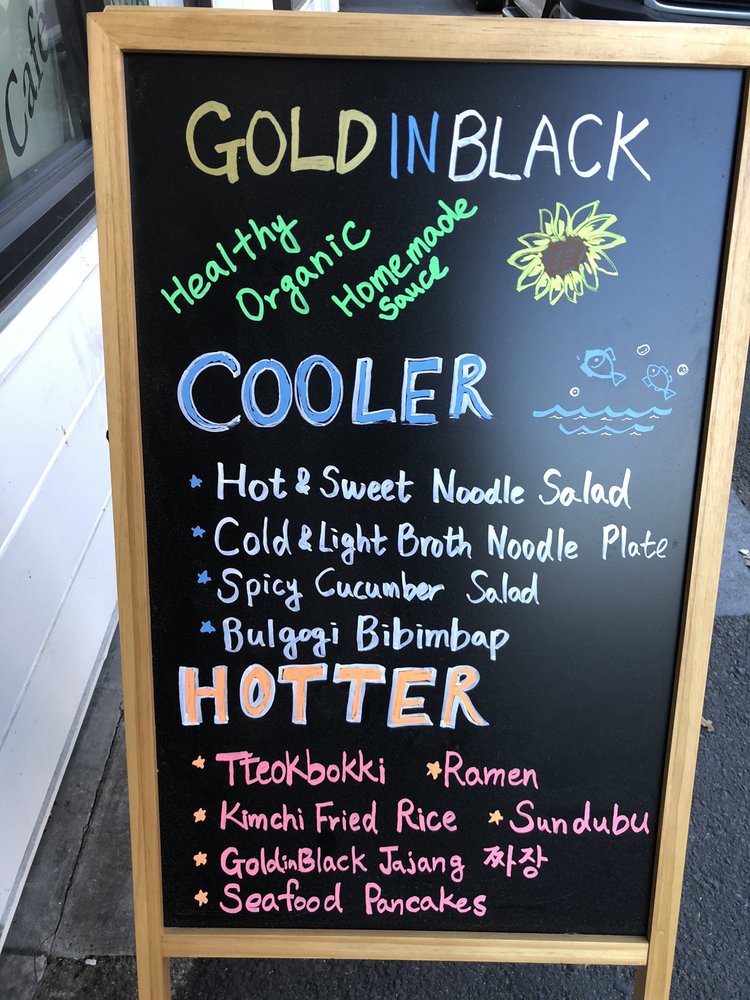 Café
GOLD IN BLACK
Healthy
Organic
Homemade
sauce
COOLER
Hot & Sweet Noodle Salad
Cold & Light Broth Noodle Plate
Spicy Cucumber Salad
Bulgogi Bibimbap
HOTTER
Tteokbokki Ramen
Kimchi Fried Rice Sundubu
GoldinBlack Jajang 짜장
Seafood Pancakes